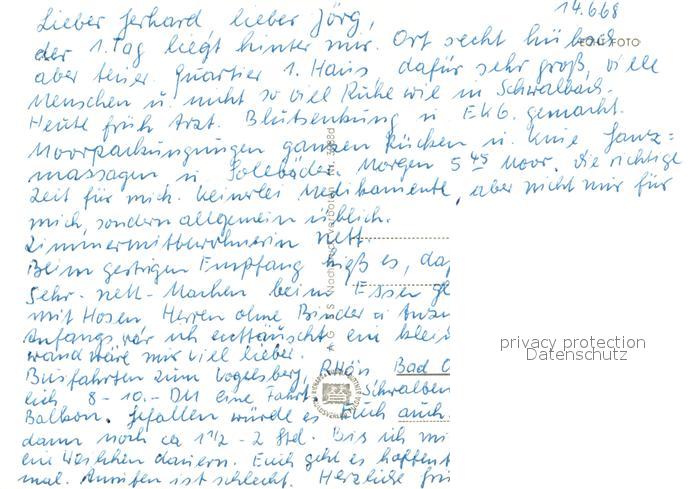 14.6.68
Lieber Gerhard lieber Jörg,
ECHT FOTO
der 1. Tag liegt hinter mir. Ort recht hübsch
aber teuer. Quartier 1. Haus, dafür sehr groß, viele
Menschen u. nicht so viel Ruhe wie in Schwalbach.
Heute früh Arzt. Blutsenkung u. EKG. gemacht.
Moorpackungungen ganzen Rücken u. Knie Ganz=
massagen u. Solebäder. Morgen 5 45 Moor, die richtige
Zeit für mich. Keinerlei Medikamente, aber nicht nur für
mich, sondern allgemein üblich.
Zimmermitbewohnerin nett.
Beim gestrigen Empfang hieß es, da
Sehr nett Machen beim Essen ge
mit Hosen Herren ohne Binder
Anfangs war ich enttäuscht ein
wand wäre mir viel lieber.
Busfahrten zum Vogelsberg, Rhön Bad
lich 8-10.- DM eine Fahrt. Schwalben
Balkon. Gefallen würde es Euch auch.
dann noch ca 1 1/2 - 2 Std. Bis ich mi
ein Weilchen dauern. Euch geht es hoffent
mal. Anrufen ist schlecht. Herzliche Grü
privacy protection
Datenschutz